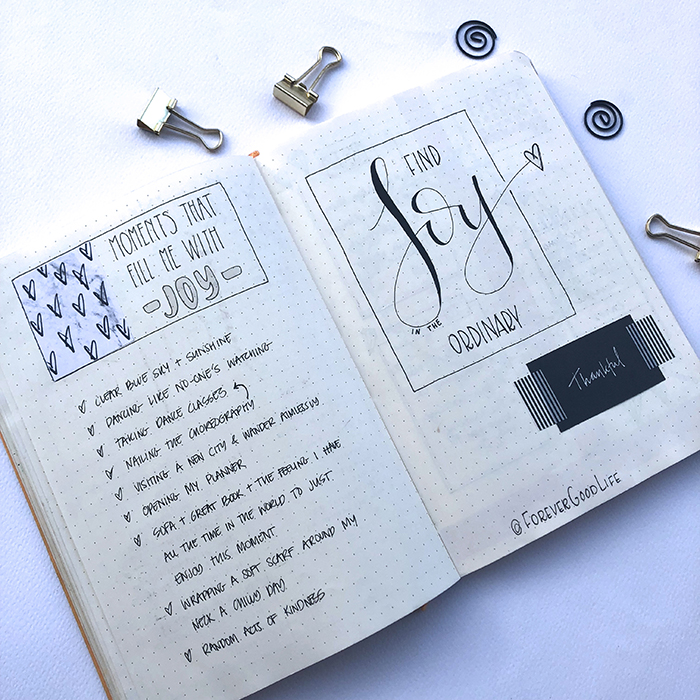 MOMENTS THAT
FILL ME WITH
-JOY-
CLEAR BLUE SKY + SUNSHINE
DANCING LIKE NO-ONE'S WATCHING
TAKING DANCE CLASSES
NAILING THE CHOREOGRAPHY
VISITING A NEW CITY & WANDER AIMLESSLY
OPENING MY PLANNER
SOFA + GREAT BOOK + THE FEELING I HAVE
ALL THE TIME IN THE WORLD TO JUST
ENJOY THIS MOMENT
WRAPPING A SOFT SCARF AROUND MY
NECK A CHILLY DAY
RANDOM ACTS OF KINDNESS
FIND
Joy
IN THE
ORDINARY
Thankful
@FOREVERGOODLIFE